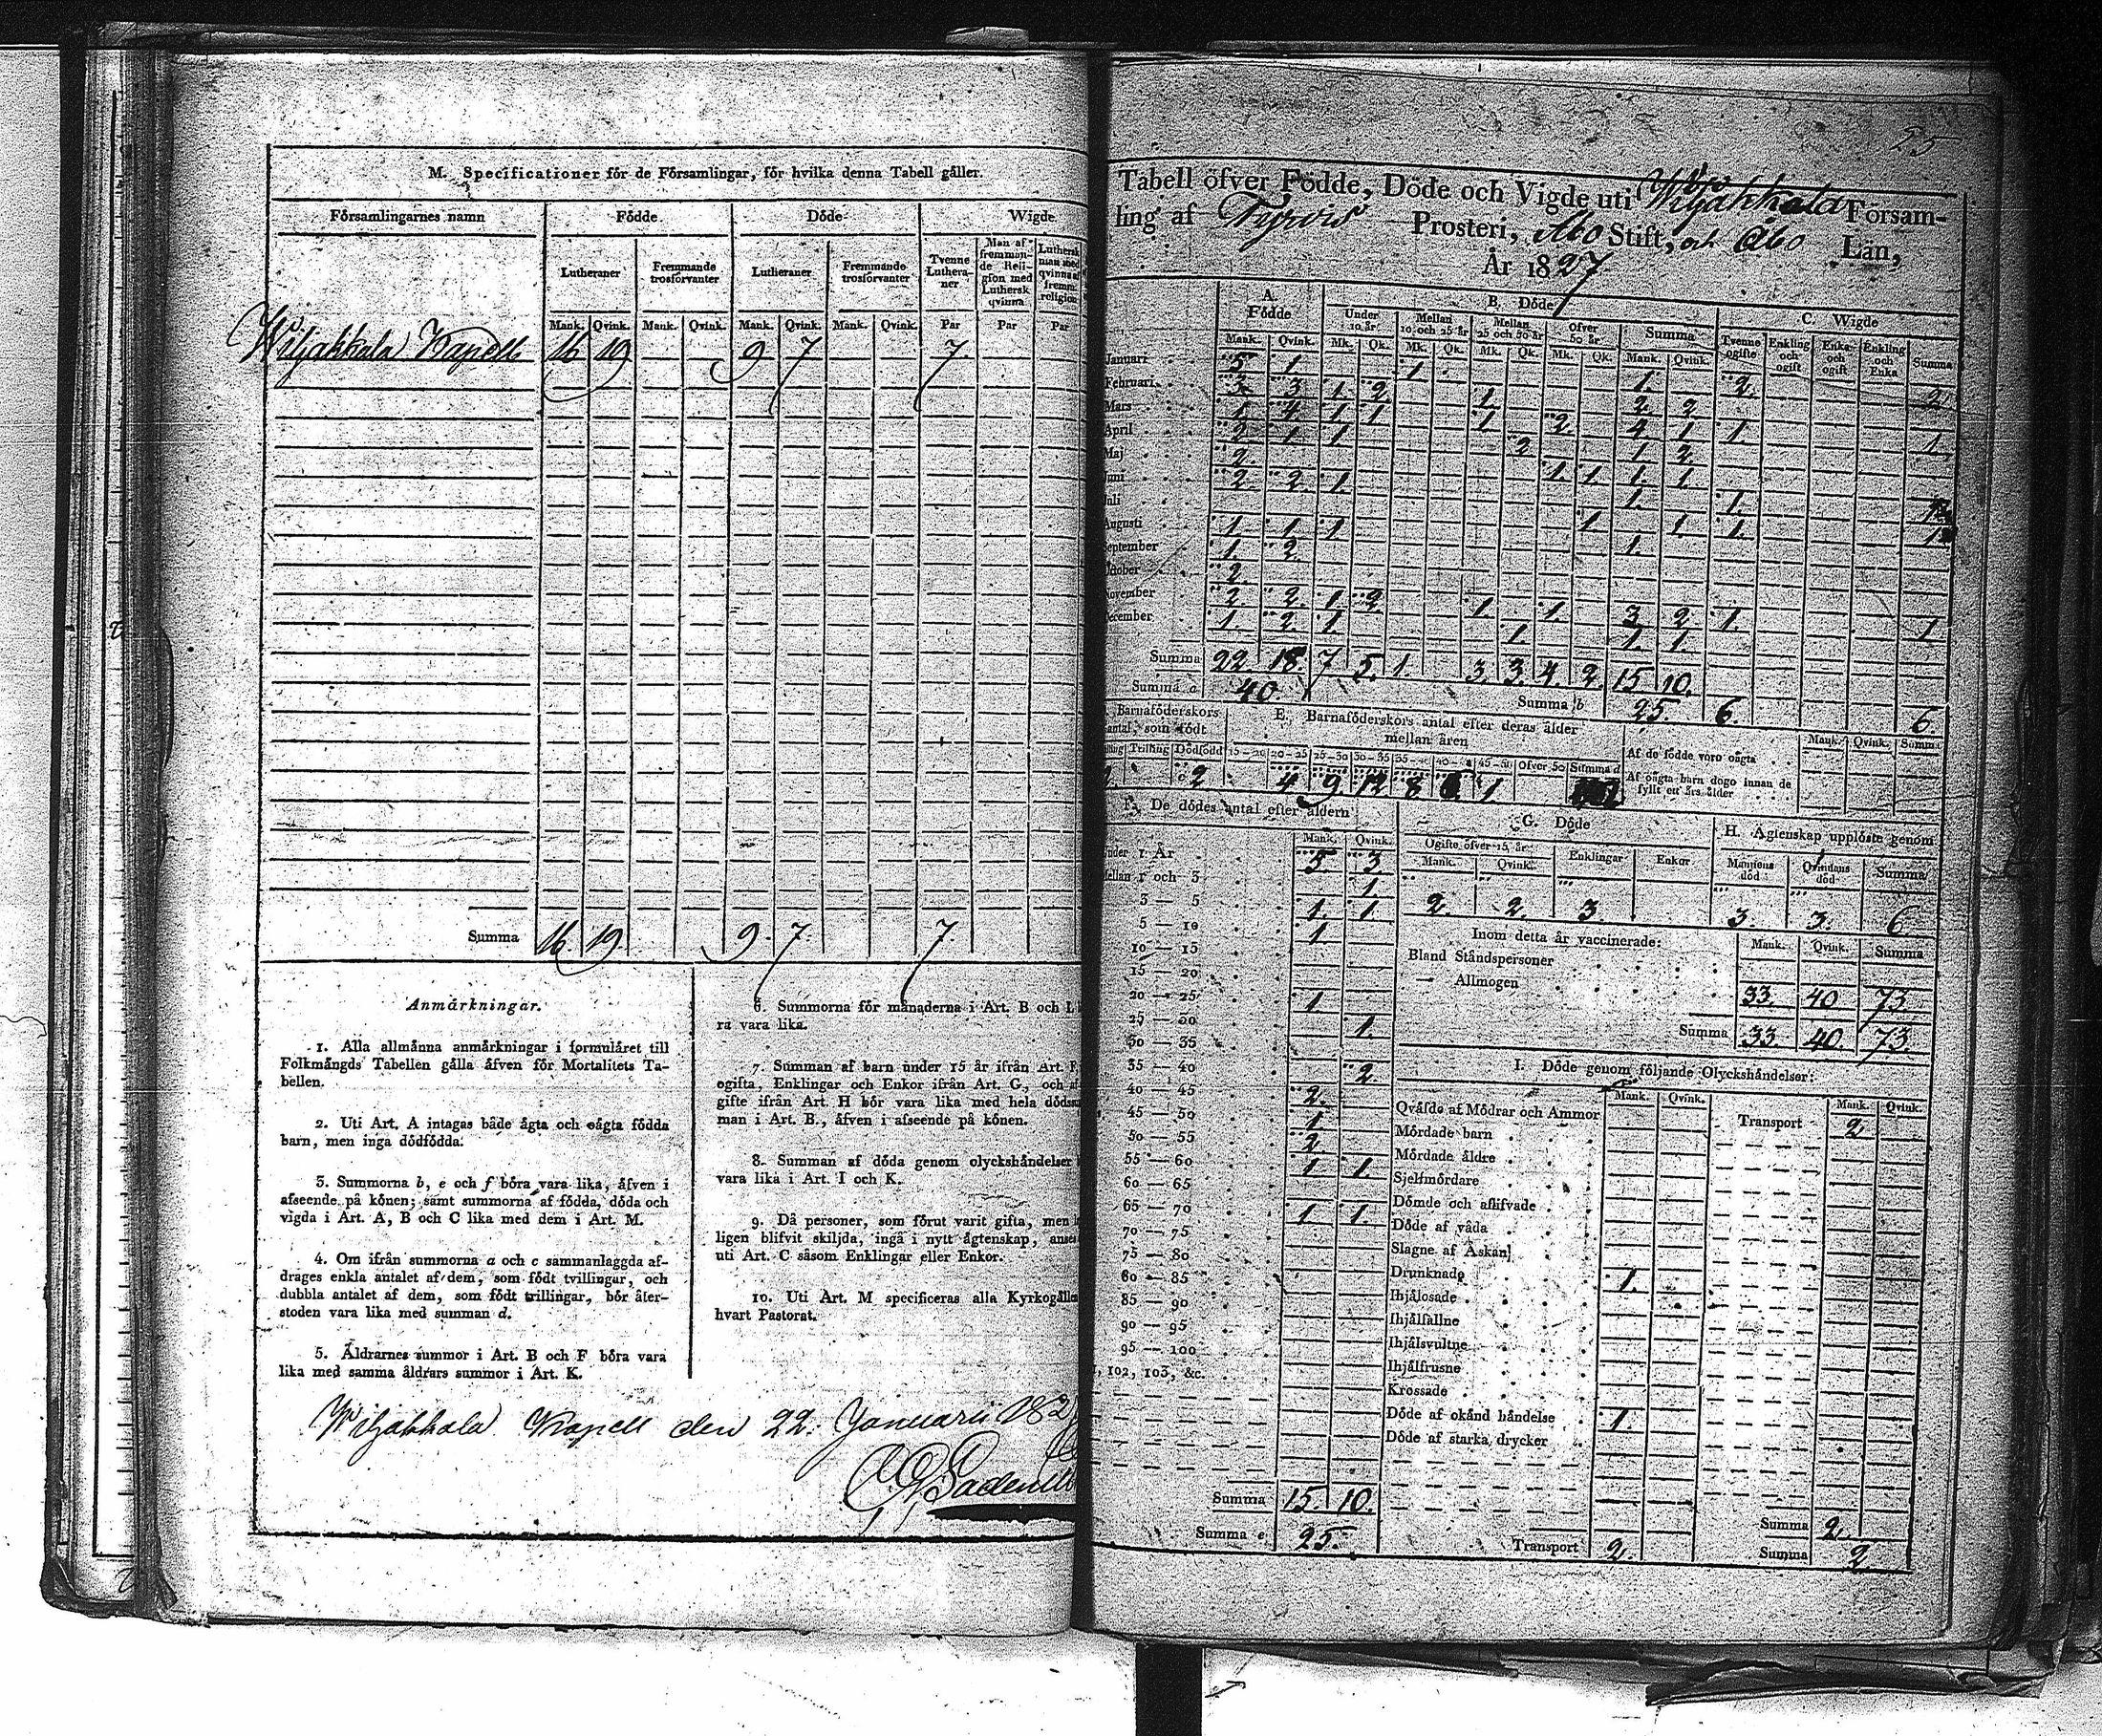 M. Specificationer för de Församlingar, för hvilka denna Tabell gäller.
Församlingarnes namn Födde. Döde Wigde
Lutheraner Fremmande trosförvanter Lutheraner Fremmande trosförvanter Tvenne Lutheraner Man af fremmande Religion med Luthersk qvinna Luthersk man med qvinna af fremm. religion
Mank. Qvink. Mank. Qvink. Mank. Qvink. Mank. Qvink. Par Par Par
Wiljakkala Kapell 16 19 9 7 7.
Summa 16. 19. 9. 7. 7.
Anmärkningar.
1. Alla allmänna anmärkningar i formuläret till
Folkmängds Tabellen gälla äfven för Mortalitets Ta-
bellen.
2. Uti Art. A intagas både ägta och oägta födda
barn, men inga dödfödda.
3. Summorna b, e och f böra vara lika, äfven i
afseende på könen; samt summorna af födda, döda och
vigda i Art. A, B och C lika med dem i Art. M.
4. Om ifrån summorna a och c sammanlaggda af-
drages enkla antalet af dem, som födt tvillingar, och
dubbla antalet af dem, som födt trillingar, bör åter-
stoden vara lika med summan d.
5. Åldrarnes summor i Art. B och F böra vara
lika med samma åldrars summor i Art. K.
6. Summorna för månaderna i Art. B och L
ra vara lika.
7. Summan af barn under 15 år ifrån Art. F,
ogifta, Enklingar och Enkor ifrån Art. G., och af
gifte ifrån Art. H bör vara lika med hela dödssu
man i Art. B., äfven i afseende på könen.
8. Summan af döda genom olyckshändelser
vara lika i Art. I och K.
9. Då personer, som förut varit gifta, men
ligen blifvit skiljda, ingå i nytt ägtenskap, anses
uti Art. C såsom Enklingar eller Enkor.
10. Uti Art. M specificeras alla Kyrkogäll
hvart Pastorat.
Wiljakkala Kapell den 22. Januarii 182
25
Tabell öfver Födde, Döde och Vigde uti Wiljakkala Försam-
ling af Tyrvis Prosteri, Åbo Stift, och Åbo Län,
År 1827.
A. Födde B. Döde C. Wigde
Under 10 år Mellan 10 och 25 år Mellan 25 och 50 år Öfver 50 år Summa Tvenne ogifte Enkling och ogift Enka och ogift Enkling och Enka Summa
Mank. Qvink. Mk. Qk. Mk. Qk. Mk. Qk. Mk. Qk. Mank. Qvink.
Januari 5 1 1 1. 2. 2
Februari 3 3 1. 2 1. 2. 2
Mars 1 4 1 1 1 2 4 1 1. 1
April 2 1 1 2 1 2
Maj 2 1 1 1 1
Juni 2 2 1 1. 1.
Juli 1 1 1.
Augusti 1 1 1
September 1. 2
October 2
November 2 2 1 2 1 1. 3 2 1. 1
December 1 2 1 1 1 1.
Summa 22. 18. 7 5. 1. 3. 3. 4. 2. 15 10.
Summa a 40 Summa b 25. 6. 6.
Barnaföderskors antal, som födt E. Barnaföderskors antal efter deras ålder mellan åren Mank. Qvink. Summa
Trilling Dödfödd 15—20 20—25 25—30 30—35 35—40 40—45 45—50 Öfver 50 Summa d Af de födde voro oägta
2 4 9 12 8 6 1. Af oägta barn dogo innan de fyllt ett års ålder
F. De dödes antal efter åldern G. Döde H. Ägtenskap upplöste genom
Mank. Qvink. Ogifte öfver 15 år Enklingar Enkor Mannens död Qvinnans död Summa
Under 1 År 5 3 Mank. Qvink.
Mellan 1 och 3 1
3 — 5 1. 1 2. 2. 3. 3. 3. 6
5 — 10 1
10 — 15
15 — 20
20 — 25 1
25 — 30 1.
30 — 35
35 — 40 2.
40 — 45 2.
45 — 50 1
50 — 55 2
55 — 60 1 1.
60 — 65
65 — 70 1 1.
70 — 75
75 — 80
80 — 85
85 — 90
90 — 95
95 — 100
102, 103, &c.
Summa 15. 10.
Summa e 25.
Inom detta år vaccinerade: Mank. Qvink. Summa
Bland Ståndspersoner
— Allmogen 33 40 73.
Summa 33. 40. 73.
I. Döde genom följande Olyckshändelser:
Mank. Qvink. Mank. Qvink.
Qväfde af Mödrar och Ammor Transport 2
Mördade barn
Mördade äldre
Sjelfmördare
Dömde och aflifvade
Döde af våda
Slagne af Åskan
Drunknade 1.
Ihjälosade
Ihjälfallne
Ihjälsvultne
Ihjälfrusne
Krossade
Döde af okänd händelse 1.
Döde af starka drycker
Summa 2.
Transport 2. Summa 2